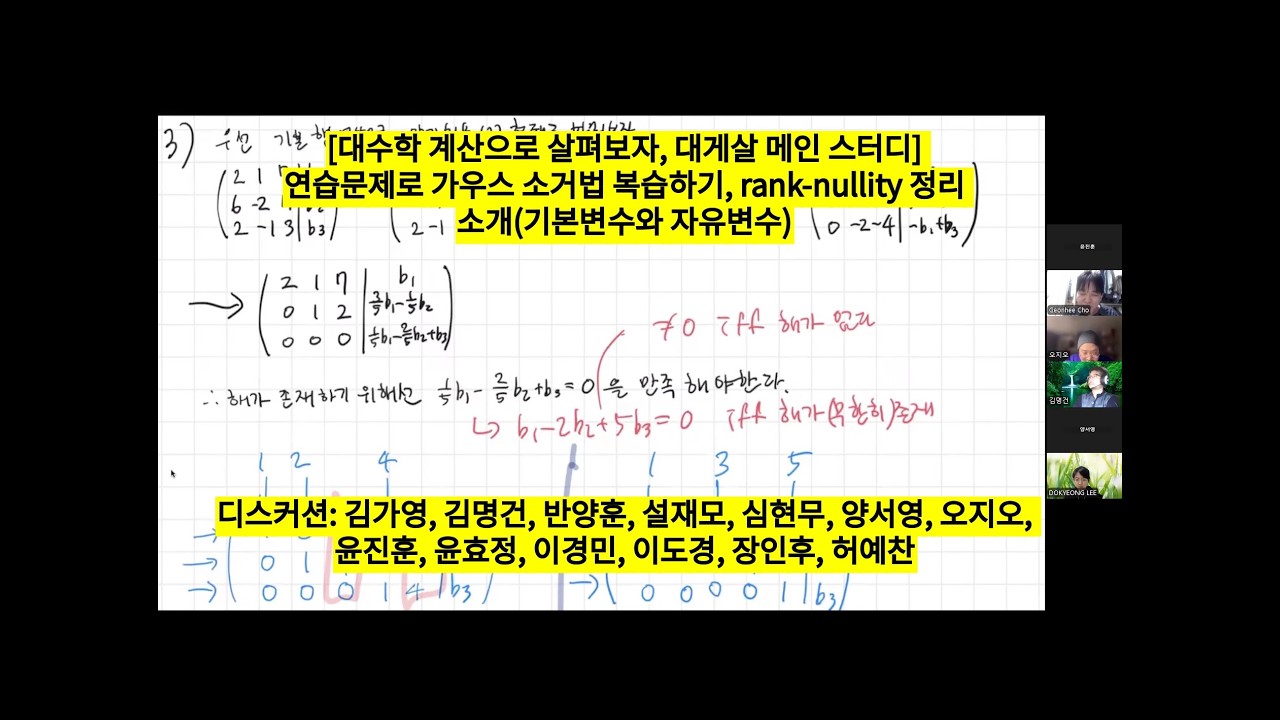 3) 우선 기본행
[대수학 계산으로 살펴보자, 대게살 메인 스터디]
연습문제로 가우스 소거법 복습하기, rank-nullity 정리
소개(기본변수와 자유변수)
2 1
6 -2
2 -1 3 | b3
2 -1
0 -2 -4 | -b1+b3
2 1 7 | b1
0 1 2 | 3/5b1-1/5b2
0 0 0 | 1/5b1-2/5b2+b3
≠0 iff 해가 없다
∴ 해가 존재하기 위해선 1/5b1-2/5b2+b3=0 을 만족 해야한다.
↳ b1-2b2+5b3=0 iff 해가(무한히)존재
1 2 4
1 3 5
디스커션: 김가영, 김명건, 반양훈, 설재모, 심현무, 양서영, 오지오,
윤진훈, 윤효정, 이경민, 이도경, 장인후, 허예찬
0 1
0 0 0 1 4 | b3
0 0 0 0 1 | b3
윤진훈
Geonhee Cho
오지오
김명건
양서영
DOKYEONG LEE